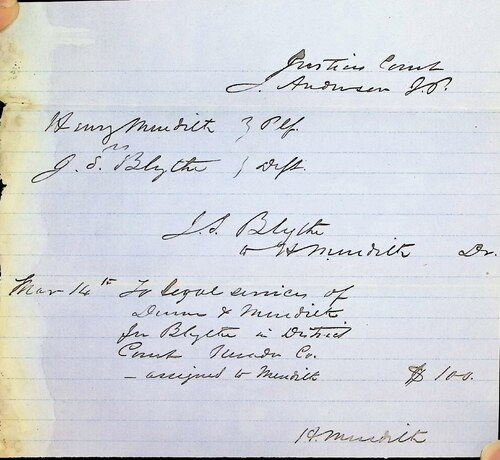 Justices Court
J. Anderson J.P.
Henry Meredith } Plf.
vs
J. S. Blythe } Deft.
J. S. Blythe
to H Meredith Dr.
Mar 14th To legal services of
Dunn & Meredith
for Blythe in District
Court Nevada Co.
– assigned to Meredith $ 100.
H. Meredith